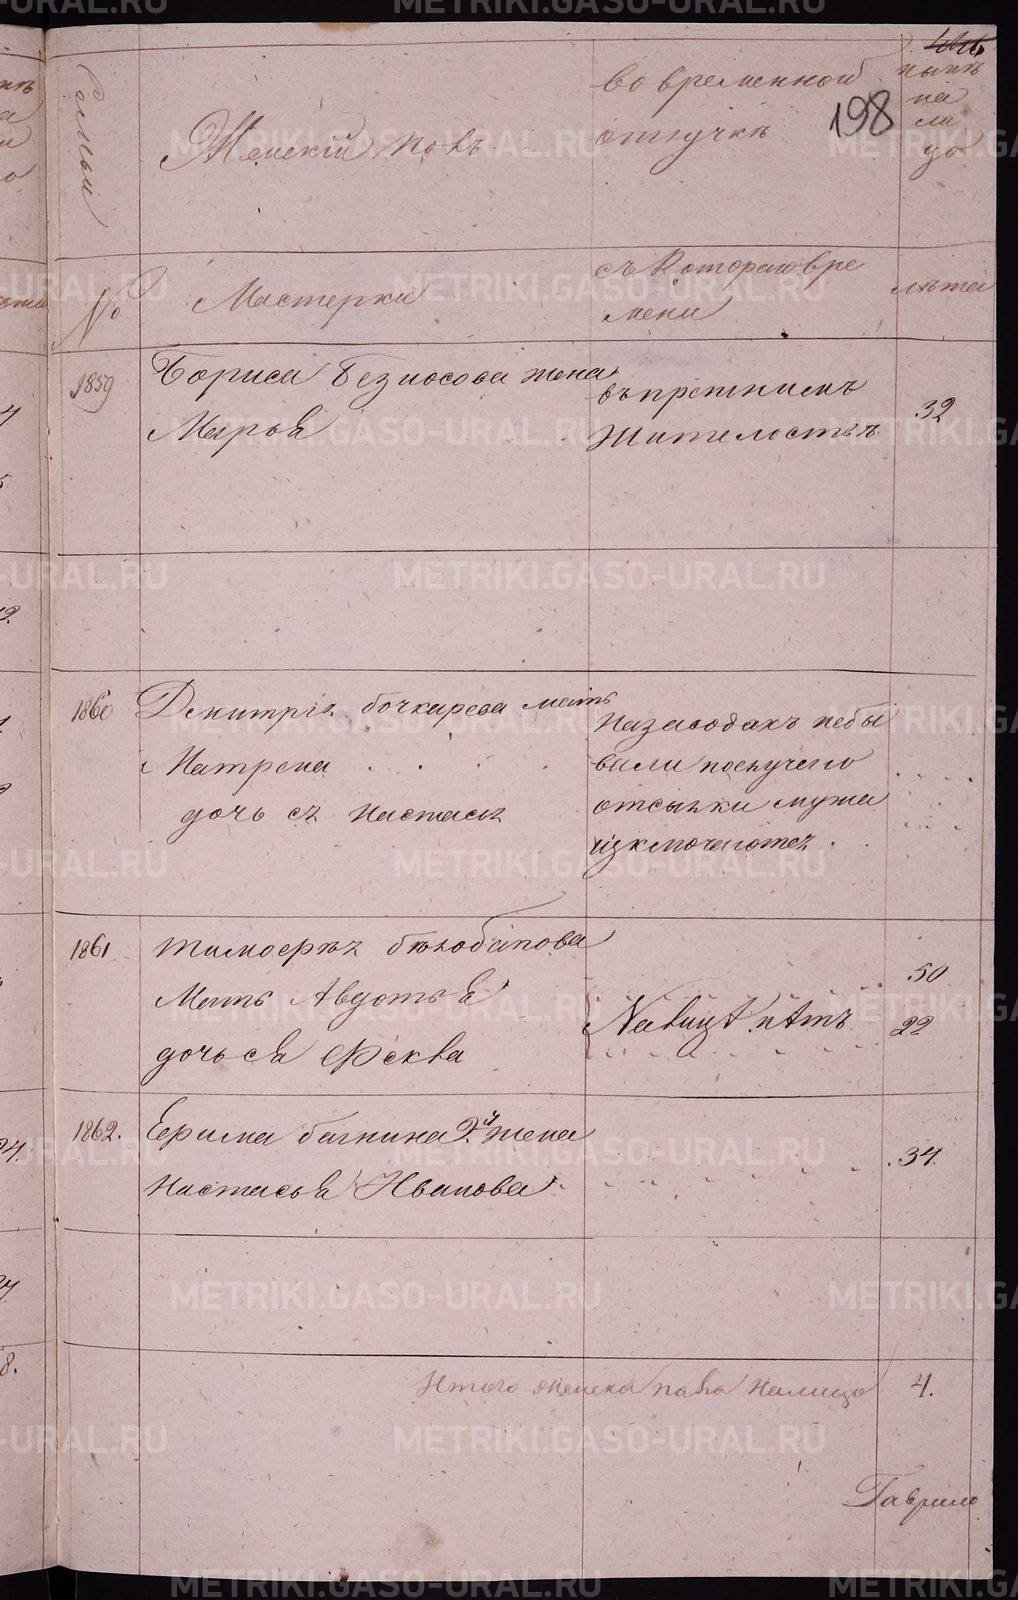 198
Семьи
Женский полъ
во временной
отлучкѣ
нынѣ
на
ли
цо
№
Мастерки
съ котораго вре
мени
лѣта
1859
Бориса Безносова жена
Марья
въ прежнимъ
жителостьѣ
32
1860
Дмитрія бочкарева мать
Матрена
дочь ея настасья
На заводахъ небы
вали послучею
отсылки мужа
изключаютса
1861
тимофея бѣлобапова
Мать Авдотья
дочь ея Фекла
50
22
1862.
Ефима багнина 2я жена
Настасья Иванова
34.
Итого женска пола налицо
4.
Гаврило
METRIKI.GASO-URAL.RU